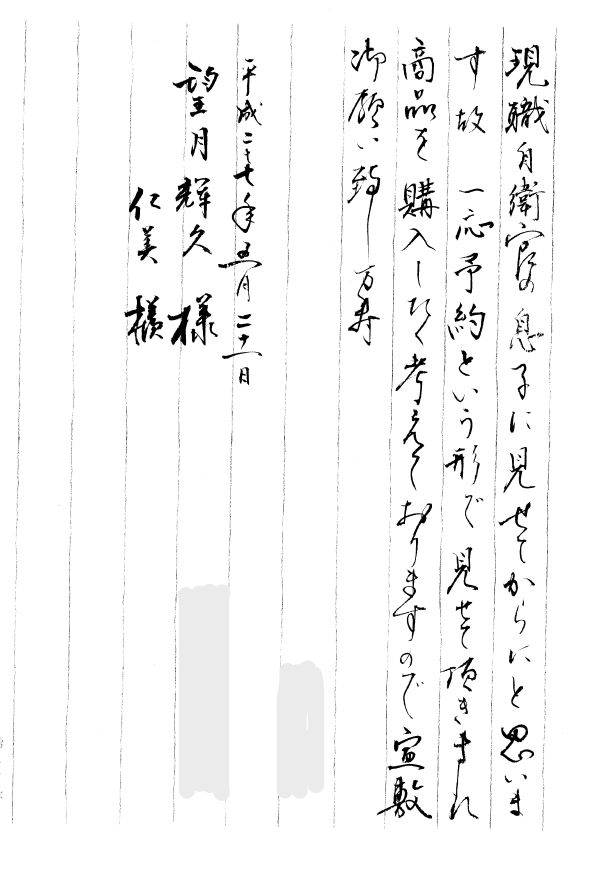 現職自衛官の息子に見せてからにと思いま
す故 一応予約という形で見せて頂きまれ
商品を購入したく考えておりますので宜敷
御願い致し万寿
平成二十七年五月二十一日
望月輝久様
仁美様